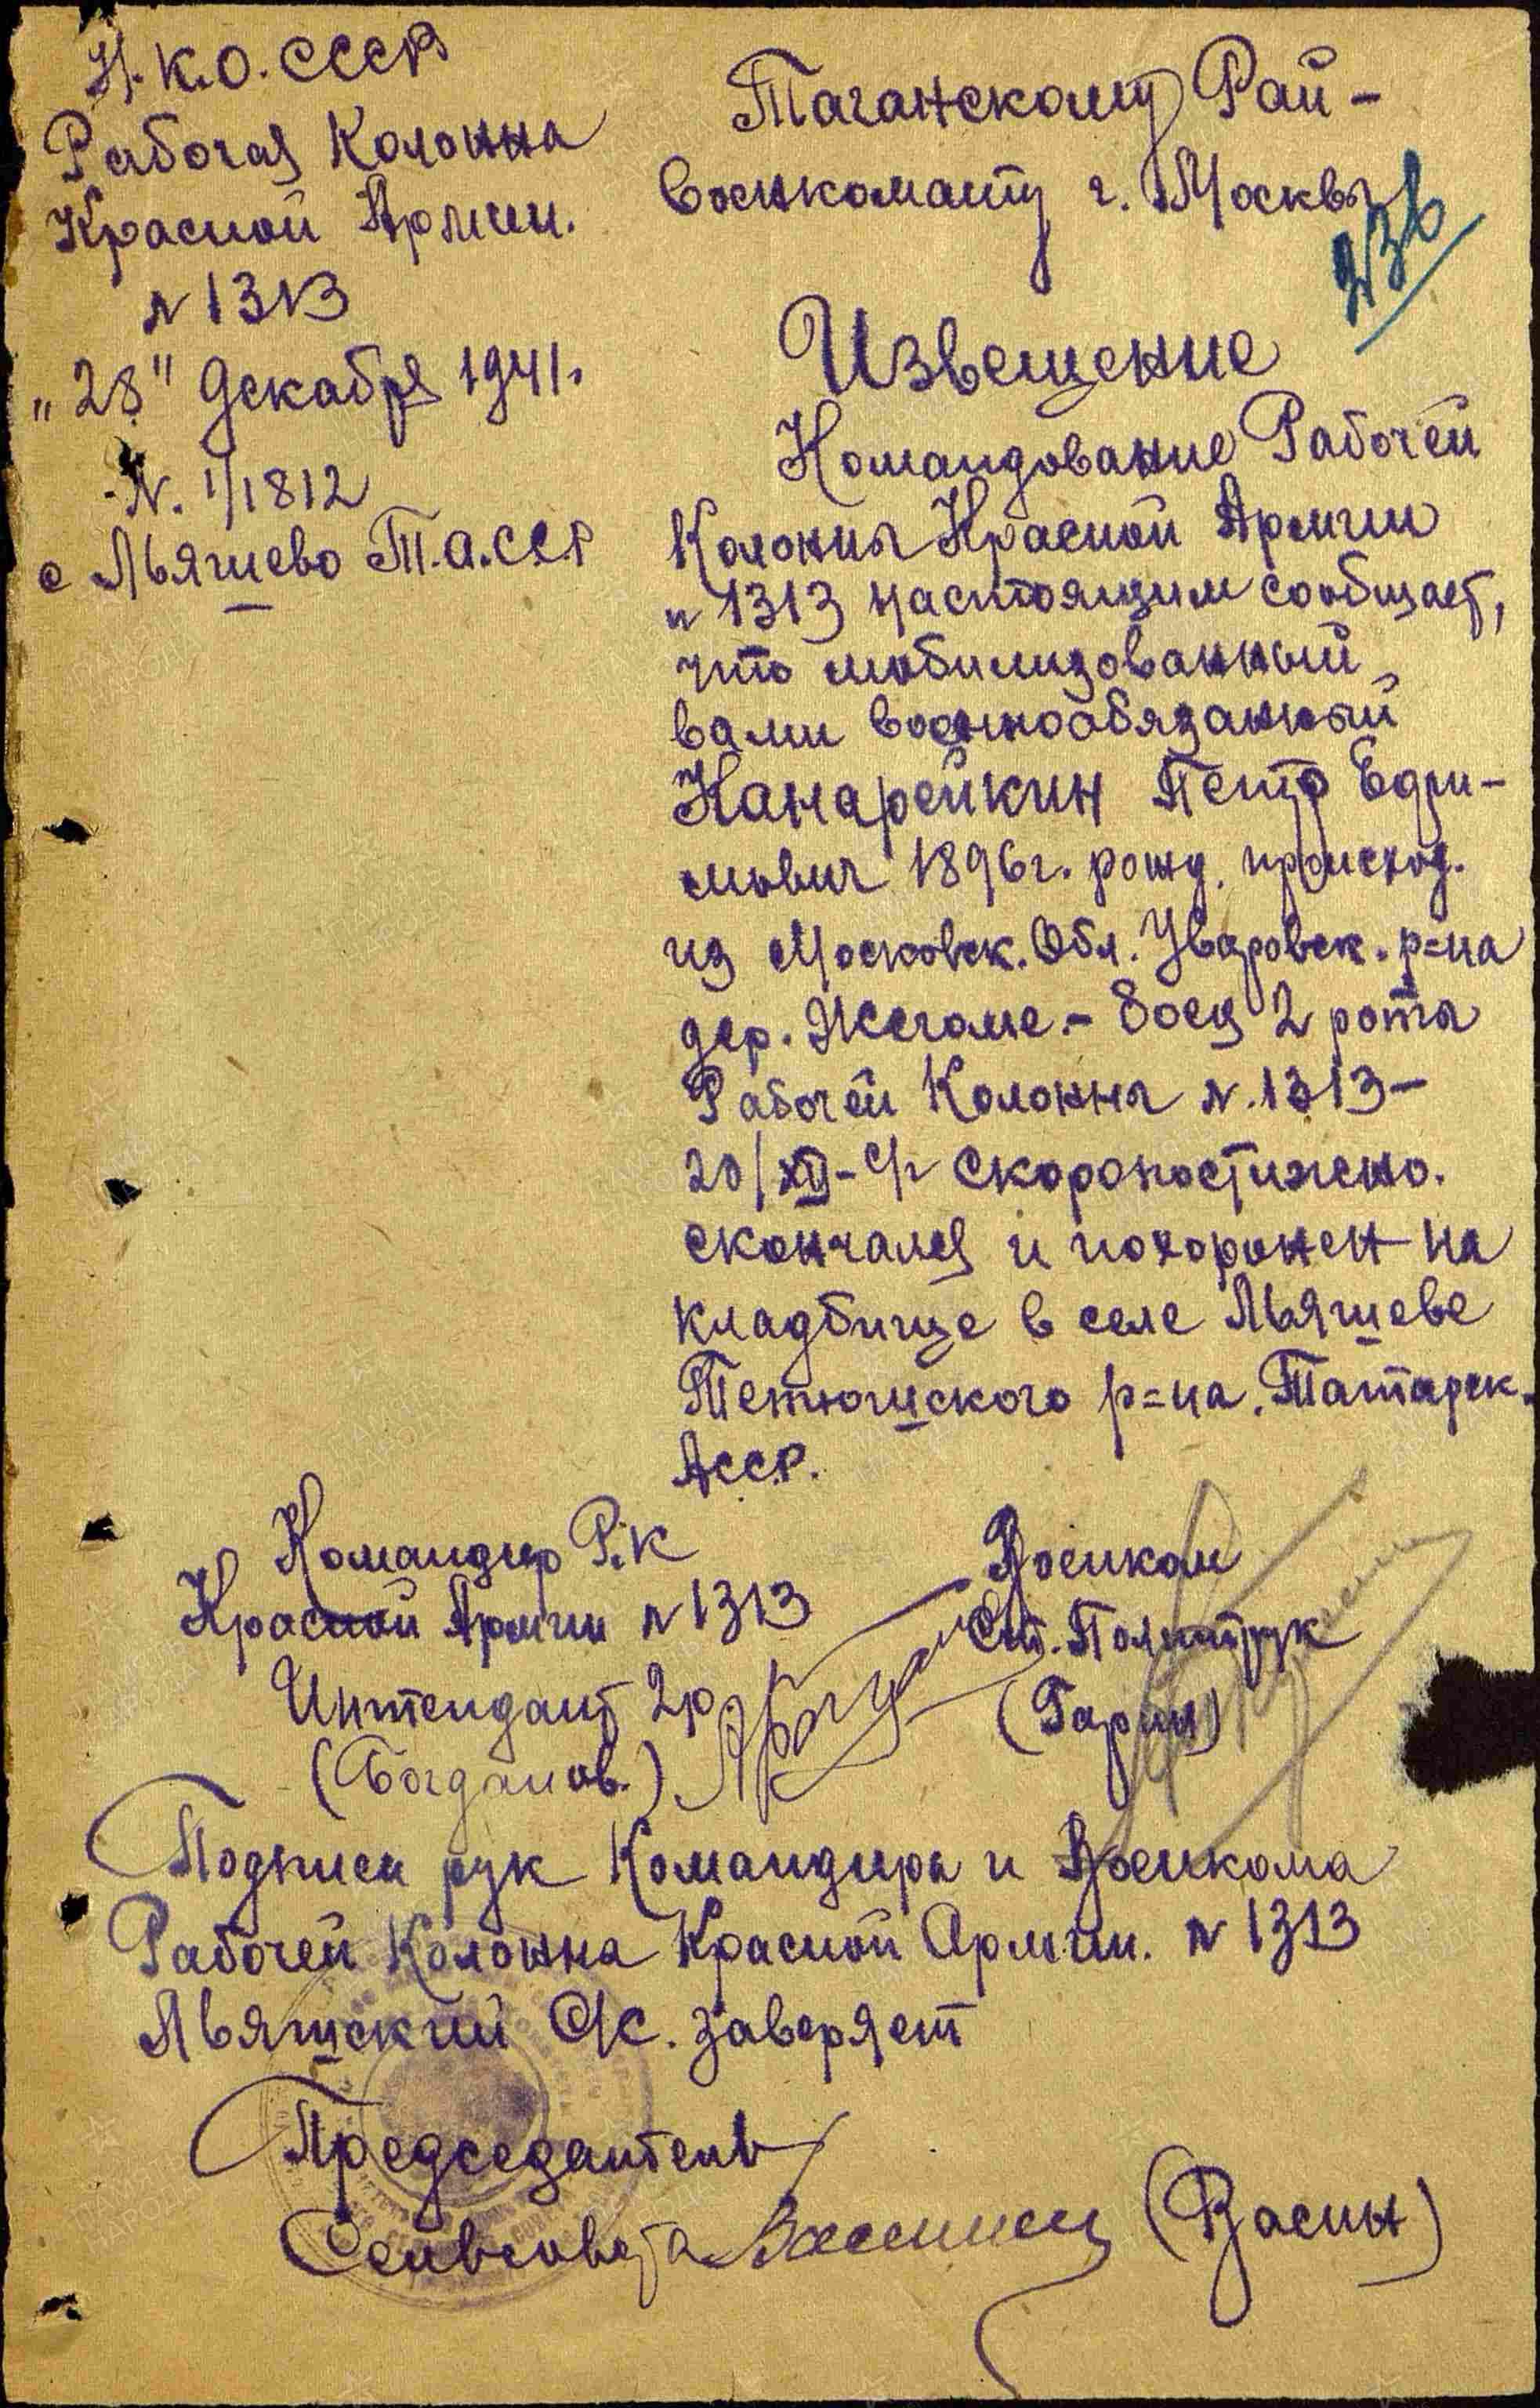 Н.К.О. СССР
Рабочая Колонна
Красной Армии.
N 1313
"28" Декабря 1941.
N. 1/1812
с Льяшево Т.А.ССР
Таганскому Рай-
военкомату г. Москвы
236
Извещение
Командование Рабочей
Колонны Красной Армии
N 1313 настоящим сообщает,
что мобилизованный
вами военнообязанный
Канарейкин Петр Ефи-
мович 1896г. рожд. происход.
из Московск. Обл. Уваровск. р=на
дер. Жегаме - боец 2 роты
Рабочей Колонны N. 1313-
20/XII-41 скоропостижно.
скончался и похоронен на
кладбище в селе Льяшеве
Тетюшского р=на. Татарск.
АССР.
Командир Р.К
Красной Армии N 1313
Интендант 2р.
(Богданов.)
Военком
Ст. Политрук
(Гарин)
Подписи рук Командира и Военкома
Рабочей Колонна Красной Армии. N 1313
Льяшский С/С. заверяет
Председатель
Сельсовета (Васин)